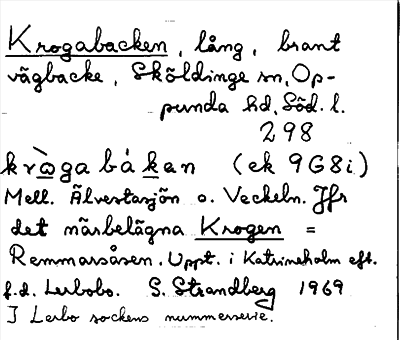 Krogabacken, lång, brant
vägbacke, Sköldinge sn, Op-
punda hd, Söd. l.
298
kròga bákan (ek 9G8i)
Mell. Älvestasjön o. Veckeln. Jfr
det närbelägna Krogen =
Remmarsåsen. Uppt. i Katrineholm eft.
f.d. Lerbobo. S. Strandberg 1969
I Lerbo sockens nummerserie.